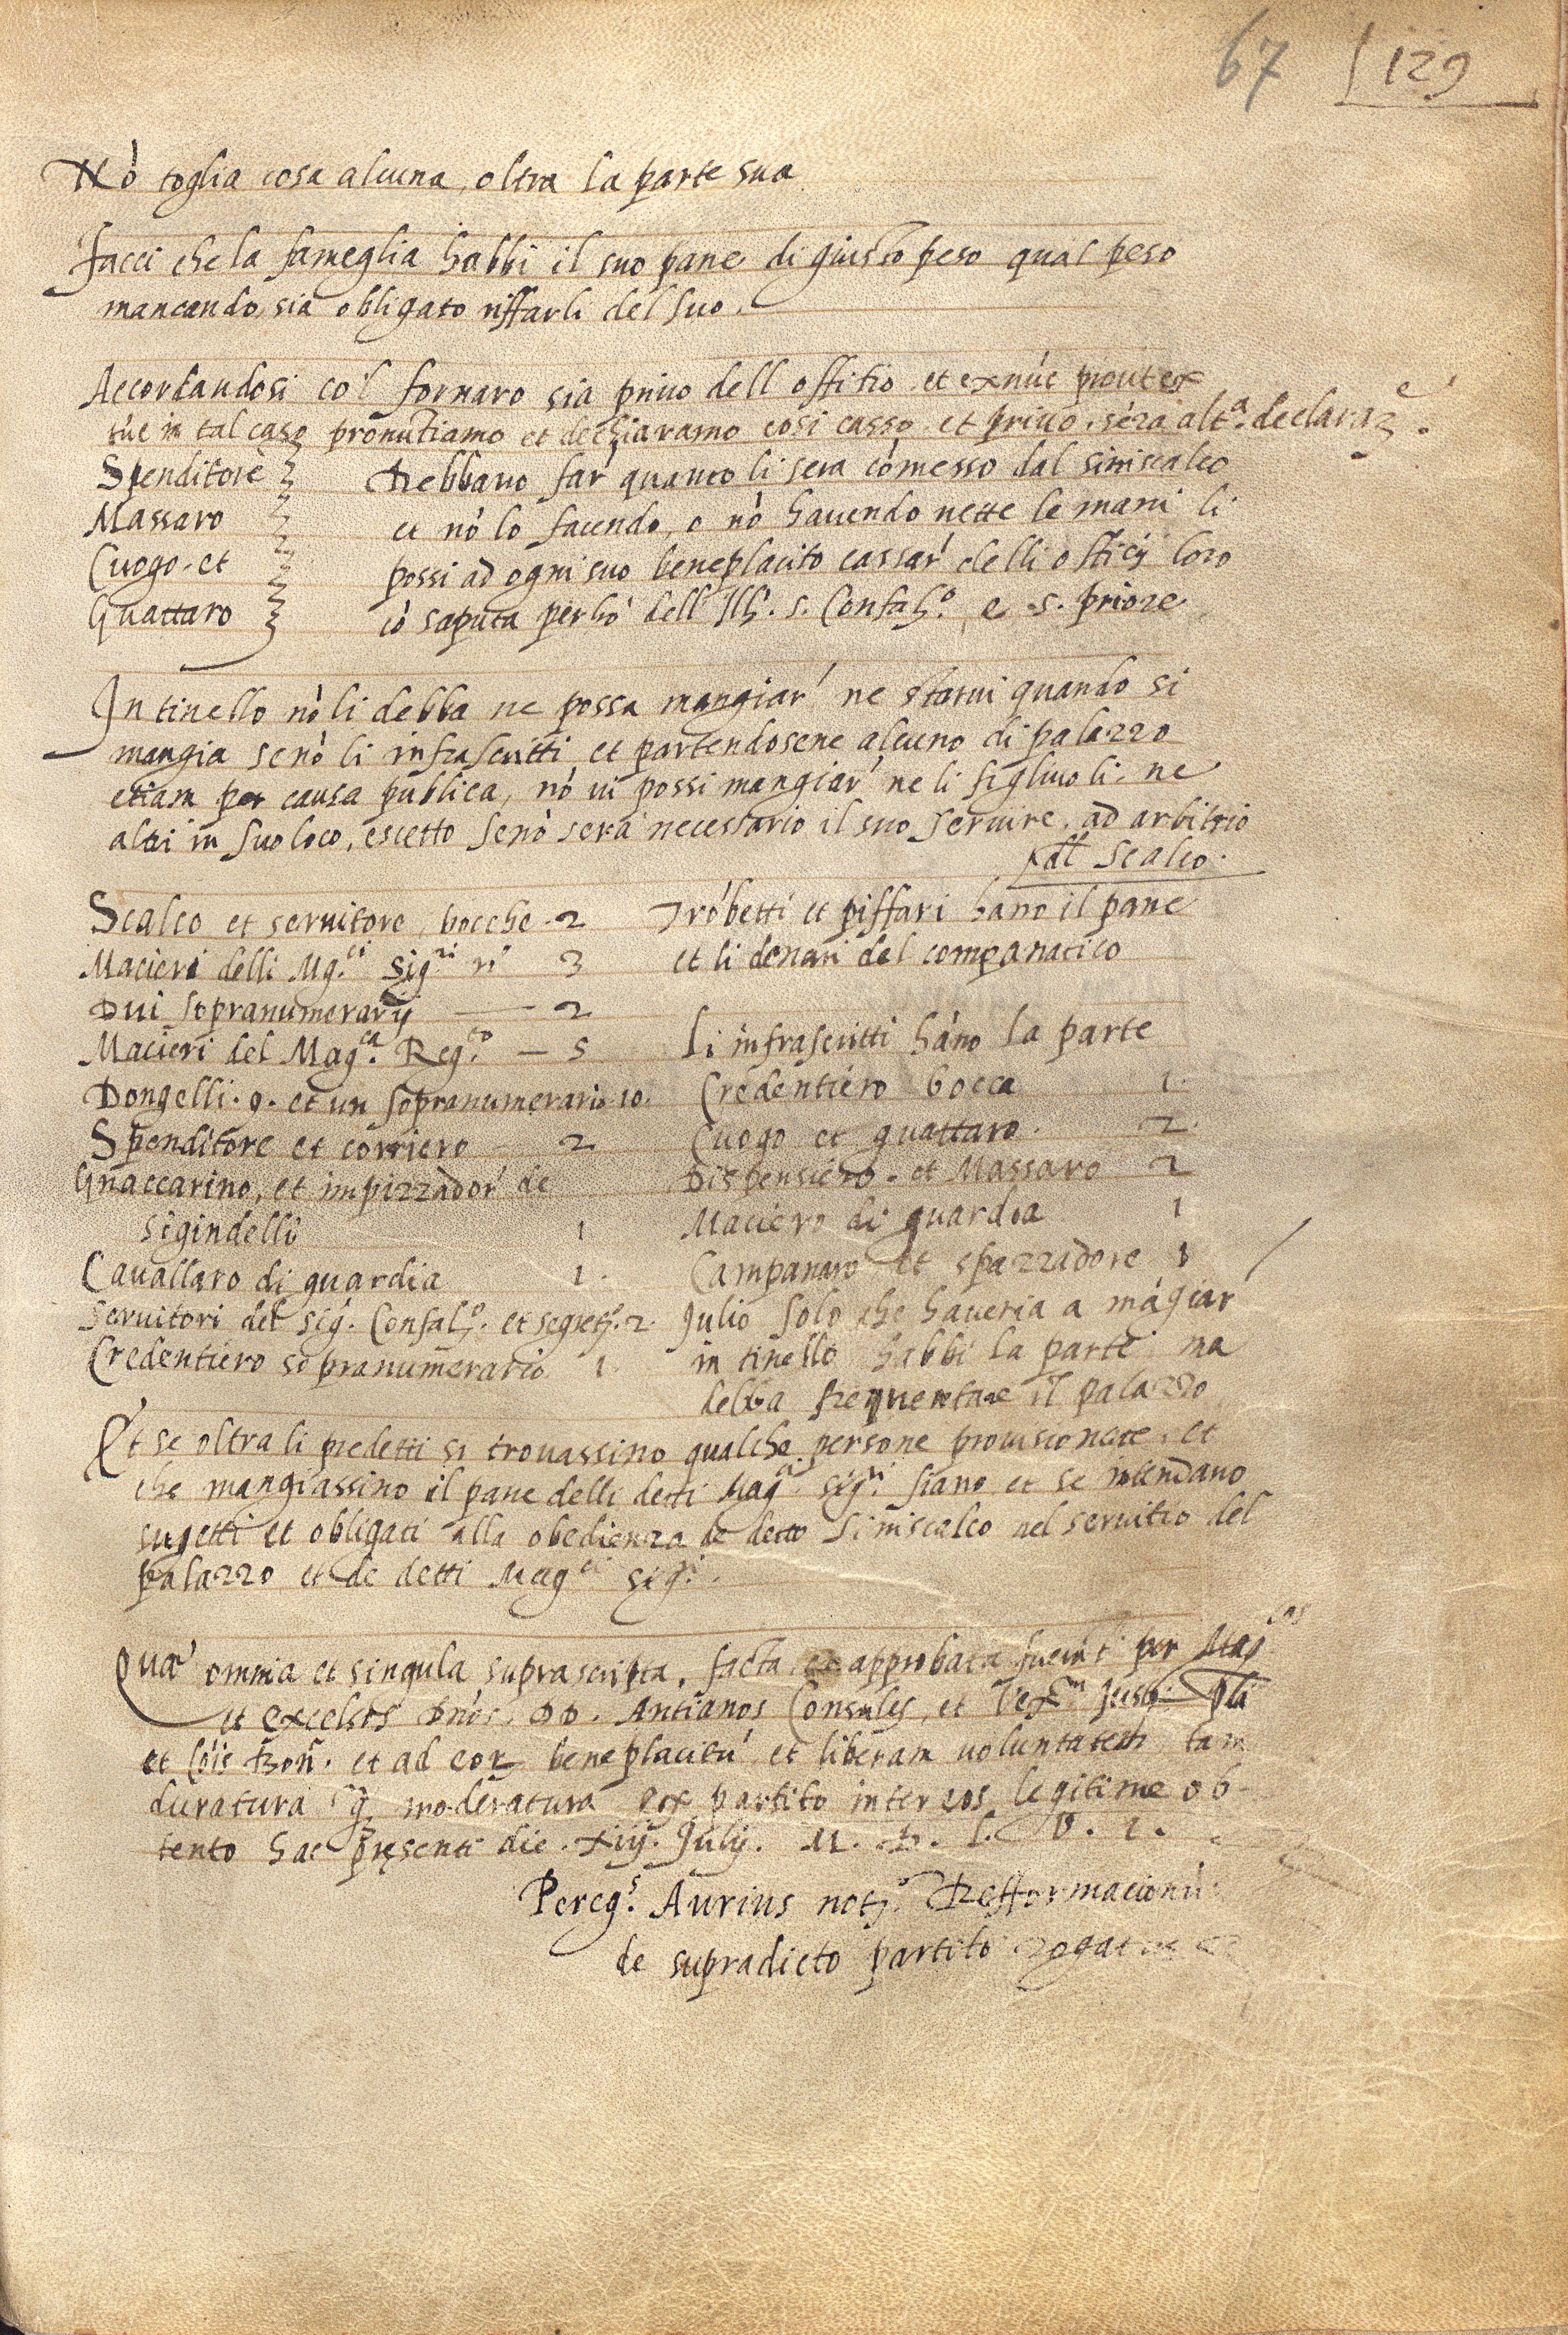 67 129
Nõ toglia cosa alcuna, oltra la parte sua
Facci che la fameglia habbi il suo pane di giusto peso qual peso
mancando, sia obligato riffarli del suo.
Accordandosi co'l fornaro sia privo dell offitio et exnũc prout ex
tũc in tal caso pronũtiamo et dechiaramo cosi casso et privo, sẽza alt.ª declaraz.e
Spenditore
Massaro
Cuogo et
Guattaro
Debbano far' quanto li sera cõmesso dal siniscalco
et nõ lo facendo, o nõ havendo nette le mani li
possi ad ogni suo beneplacito cassar' delli officij loro
cõ saputa perhò dell' Ill. s. Confal.º e s. priore
In tinello nõ li debba ne possa mangiar' ne starvi quando si
mangia senõ li infrascritti et partendosene alcuno di palazzo
etiam per causa publica, nõ vi possi mangiar' ne li figliuoli, ne
altri in suo loco, escetto senõ sera necessario il suo servire, ad arbitrio
dl scalco.
Scalco et servitore, bocche - 2
Macieri delli Mg.ci Sig.ri nº 3
Dui sopranumerarij — 2
Macieri del Mag.ca Reg.to — 5
Dongelli . 9 . et un sopranumerario 10.
Spenditore et corriero — 2
Gnaccarino, et impizzador' de
sigindelli 1
Cavallaro di guardia 1.
Servitori del sig. Confal.º et segret.º 2.
Credentiero sopranumerario 1.
Trõbetti et piffari hano il pane
et li denari del companatico
Li infrascritti hãno la parte
Credentiero bocca 1.
Cuogo et guattaro. 2.
Dispensiero. et Massaro 2
Maciero di guardia 1
Campanaro et spazzadore 1
Julio solo che haveria a mãgiar
in tinello habbi la parte ma
debba frequentare il palazzo
Et se oltra li predetti si trovassino qualche persone provisionate, et
che mangiassino il pane delli detti Mag.ci sig.ri siano et se intendano
sugetti et obligati alla obedienza de detto siniscalco nel servitio del
palazzo et de detti Mag.ci sig.ri.
Quæ omnia et singula suprascripta, facta et approbata fuerũt per Mag.cos
et excelsos Dños. DD. Antianos Consules, et Vex.m Just. Pli
et Cõis Bon. et ad eoꝝ beneplacitũ et liberam voluntatem tam
duratura q̃ moderatura ex partito inter eos legitime ob-
tento hac pręsenti die . xiij. Julij. M. D. L. V. 1.
Pereg.s Aurius not.s Refformacionũ
de supradicto partito rogatus